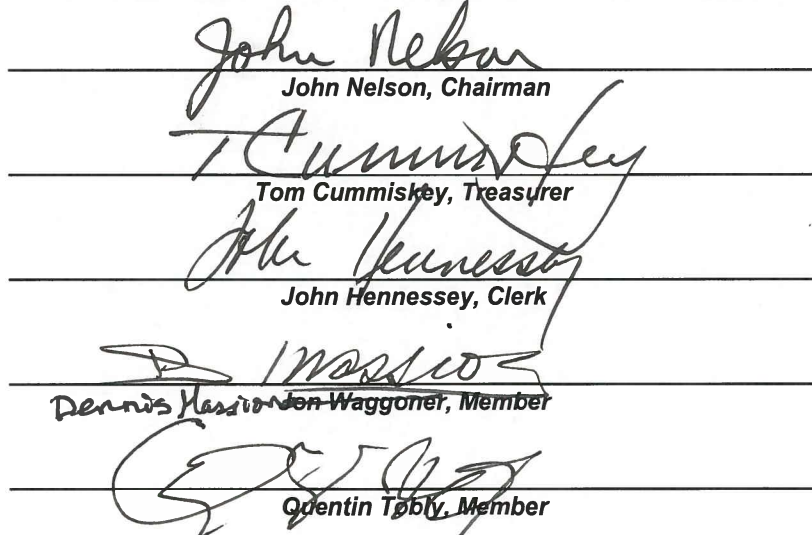 John Nelson
John Nelson, Chairman
T Cummiskey
Tom Cummiskey, Treasurer
John Hennessey
John Hennessey, Clerk
D Massion
Dennis Massion Jon Waggoner, Member
Quentin Tobly, Member